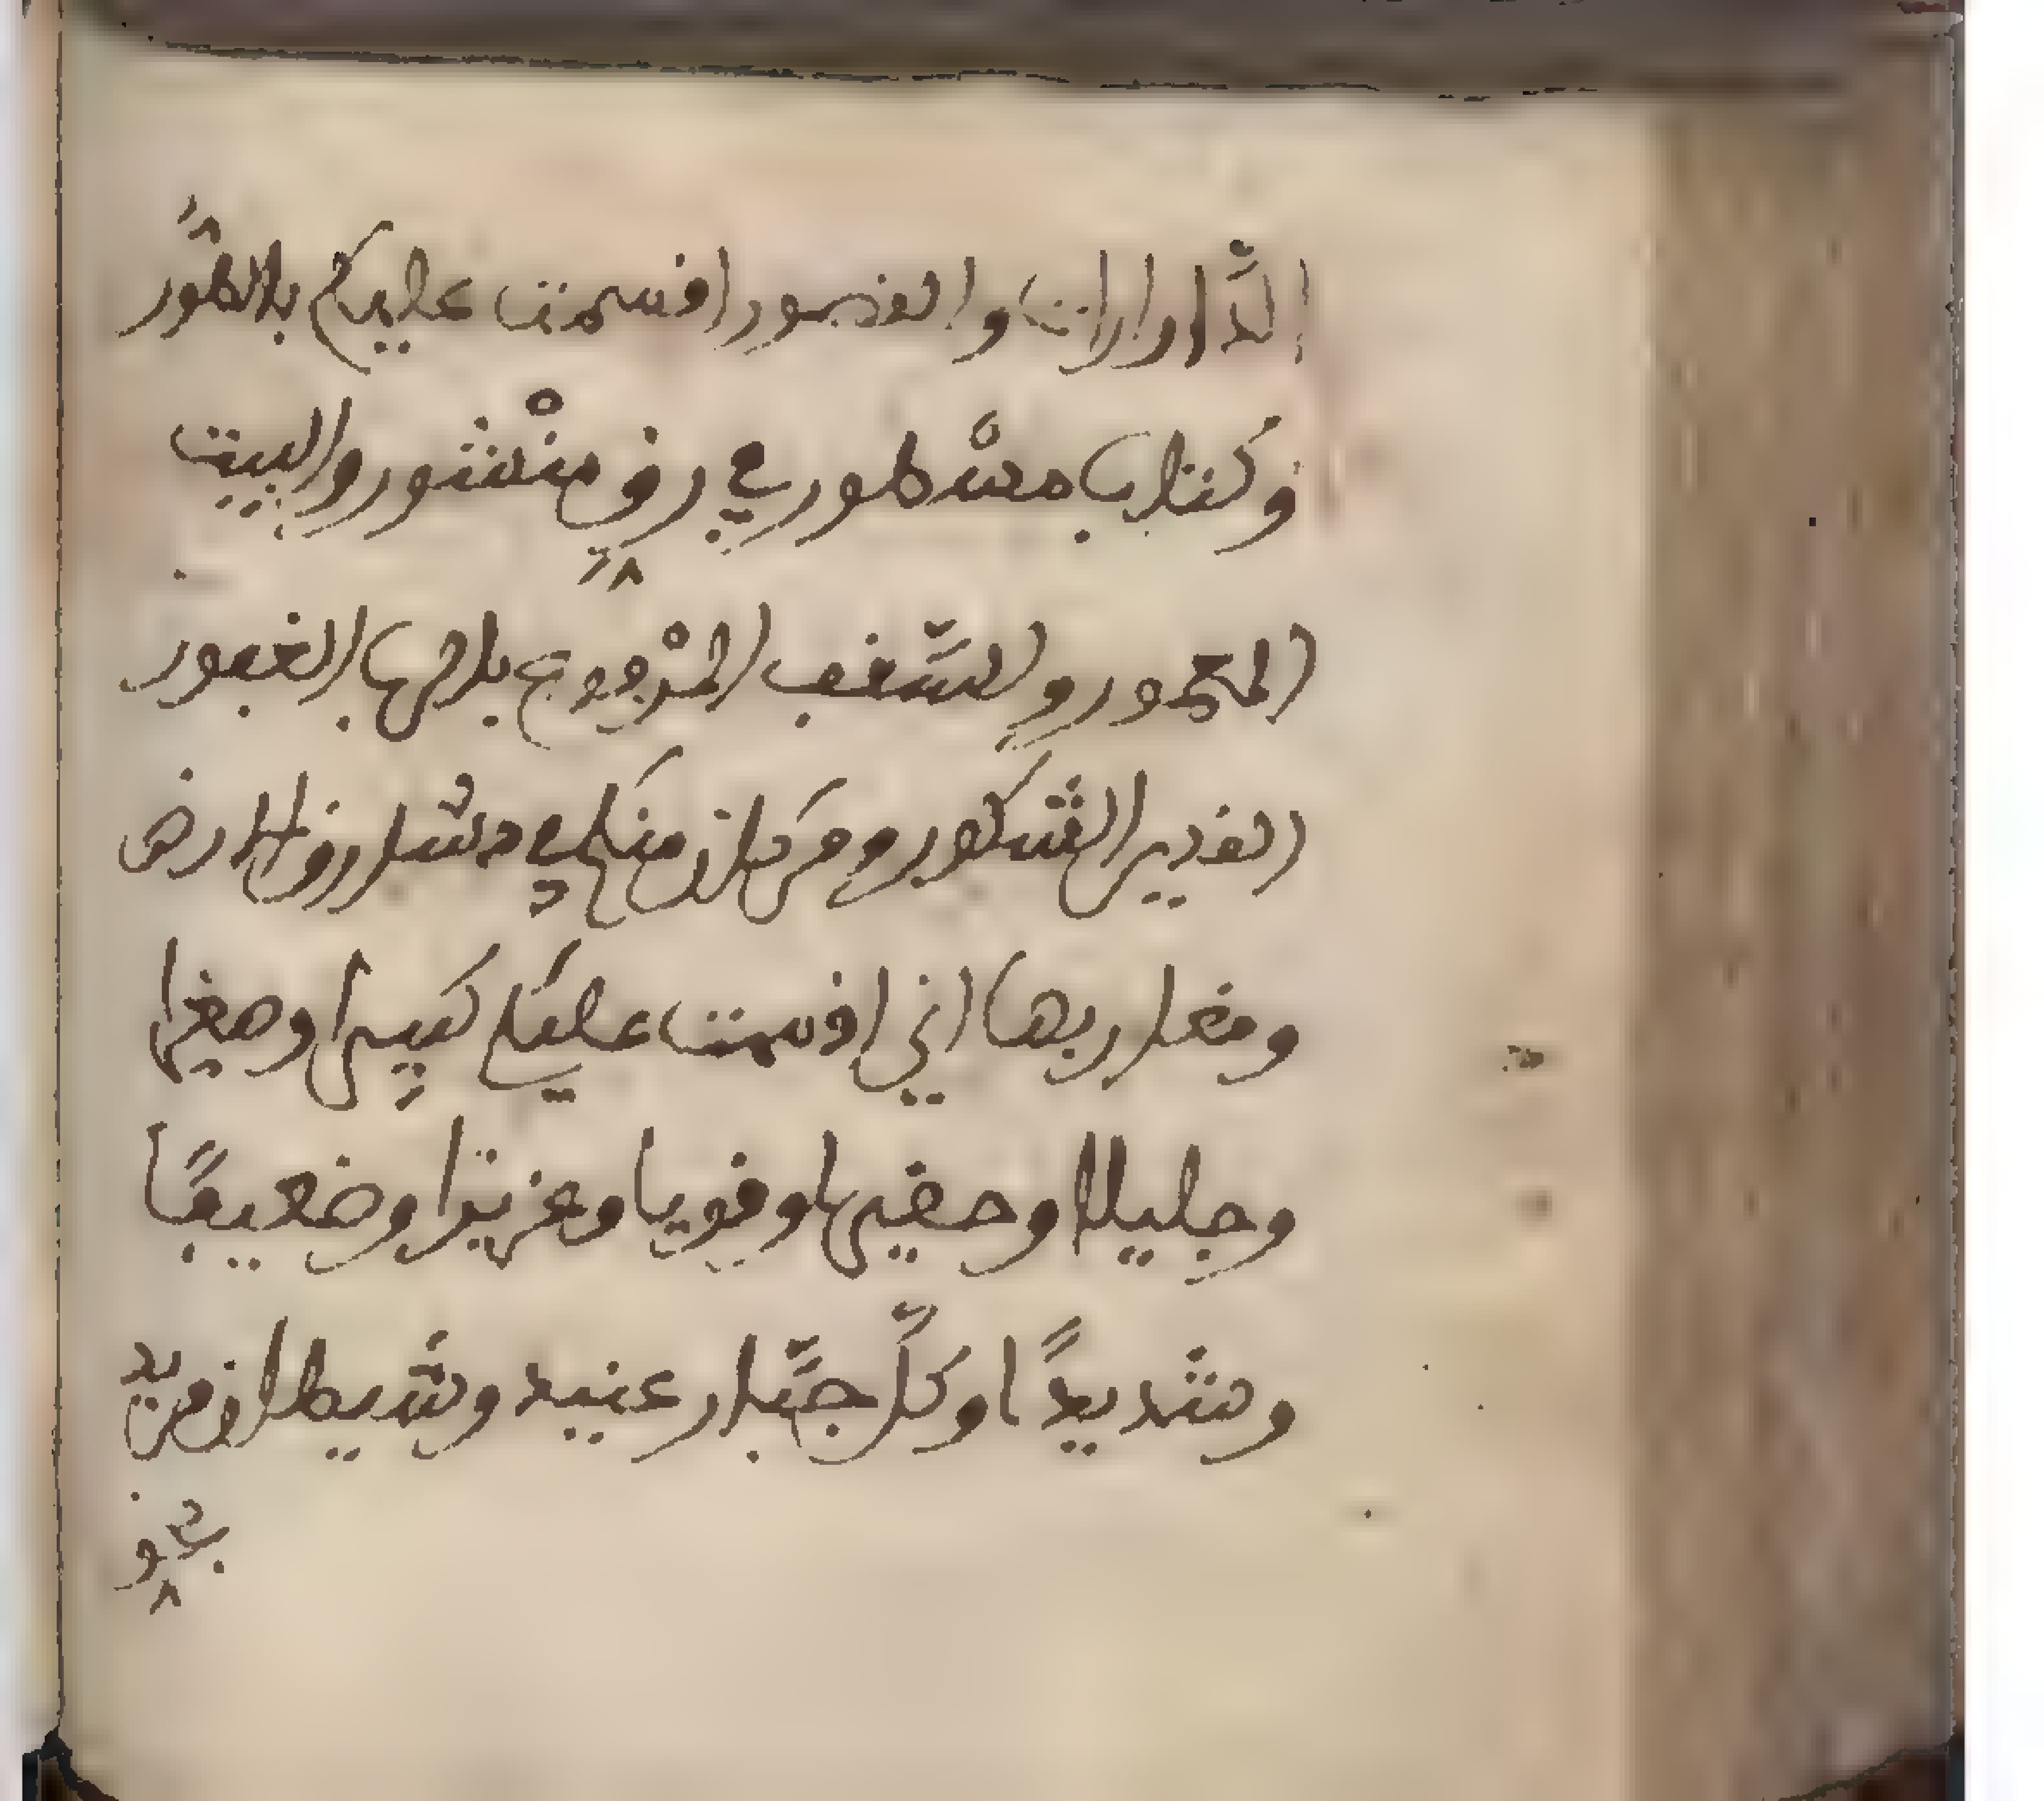 الدَّارات والقصور اقسمت عليكم بالطُّور
وكتاب مسْطور في رقٍّ منْشور والبيت
المعمور والسَّقف المرْفوع باهيا الغفور
القدير الشكور ومن كان منكم في مشارق الارض
ومغاربها اني اقسمت عليكم كبيرا وصغيرا
وجليلا وحقيرا وقويا وعزيزا وضعيفًا
وشديدًا وكلّ جبَّار عنيد وشيطان مريد
في